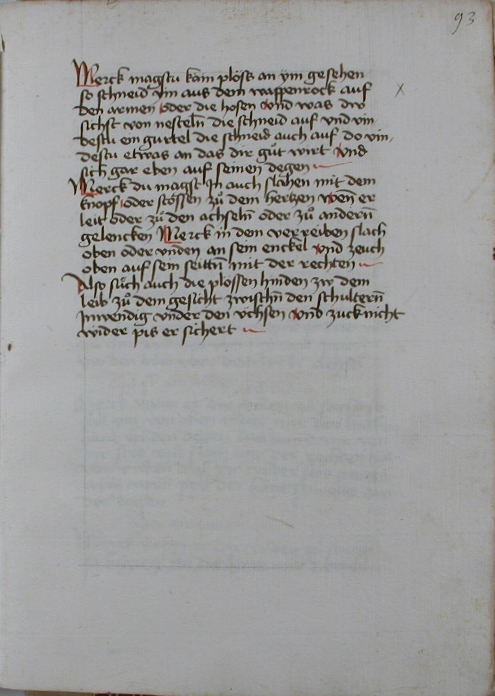 93
Merck magstu kain plöss an ym gesehen
so schneid ym aus dem waffenrock auf
den armen oder die hosen Vnd was dw
sichst von nesteln die schneid auf vnd vin
destu ein gurtel die schneid auch auf do vin,
destu etwas an das dir gůt wirt Vnd
sich gar eben auf seinen degen
Merck du magst In auch slahen mit dem
knopf oder stössen zů dem hertzen Wen er
leit oder zů den achseln oder zů andern
gelencken Merck in dem verreiben slach
oben oder vnden an sein enckel Vnd zeuch
oben auf sein seittn mit der rechten
Also sůch auch die plossen hinden zw dem
leib zů dem gesicht zwischn den schultern
Inwendig vnder den vchsen Vnd zuck nicht
wider pis er sichert